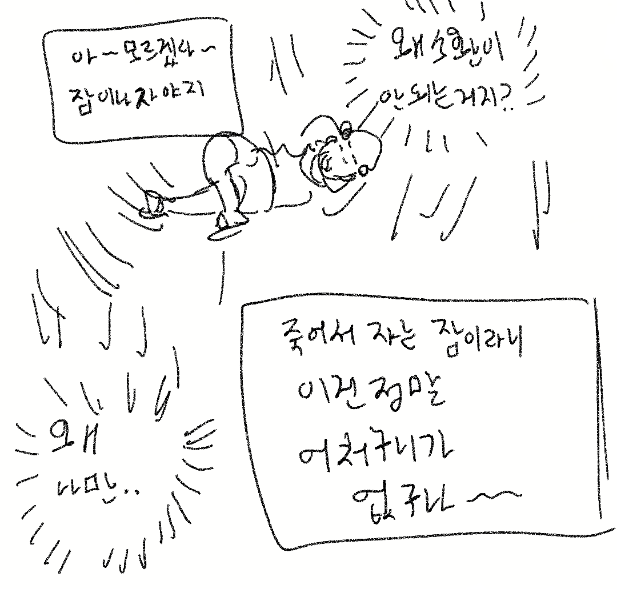 아~모르겠다~
잠이나 자야지
왜 소환이
안되는거지?
죽어서 자는 잠이라니
이건 정말
어처구니가
없구나~~
왜
나만..